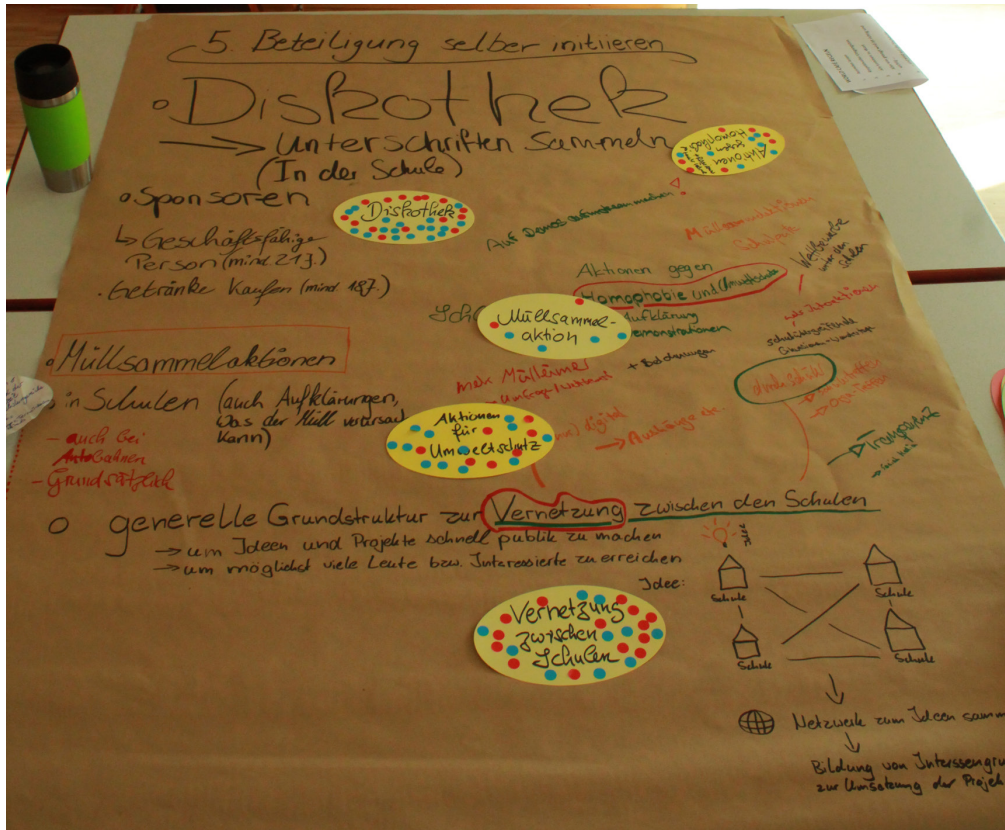 5. Beteiligung selber initiieren
Diskothek
→ Unterschriften sammeln
(In der Schule)
Sponsoren
↳ Geschäftsfähige
Person (mind. 21 J.)
Getränke Kaufen (mind. 18 J.)
Diskothek
Aktionen
gegen
Auf Demos aufmerksam machen
Aktionen gegen
Homophobie und Umweltschutz
Aufklärung
Demonstrationen
+ Bestrafungen
Müllsammel-
aktion
Wettbewerbe
unter den
Schulen
Müllsammelaktionen
in Schulen (auch Aufklärungen,
Was der Müll verursa
Kann)
- auch bei
Autobahnen
- Grundsätzlich
mehr Mülleimer
digital
→ Aushänge etc.
Aktionen
für
Umweltschutz
→ Transparente
generelle Grundstruktur zur Vernetzung zwischen den Schulen
→ um Ideen und Projekte schnell publik zu machen
→ um möglichst viele Leute bzw. Interessierte zu erreichen
Vernetzung
zwischen
Schulen
Idee:
Schule
Schule
Schule
Schule
Netzwerk zum Ideen samm
Bildung von Interssengru
zur Umsetzung der Projek